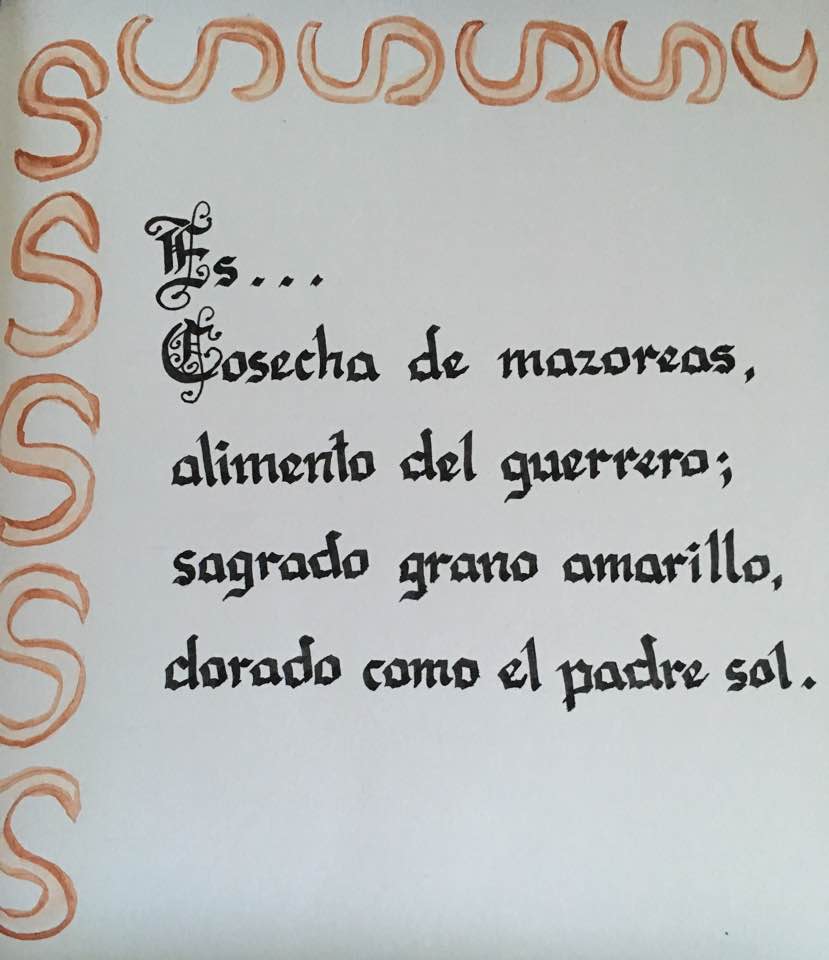 Es...
Cosecha de mazoreas,
alimento del guerrero;
sagrado grano amarillo,
dorado como el padre sol.